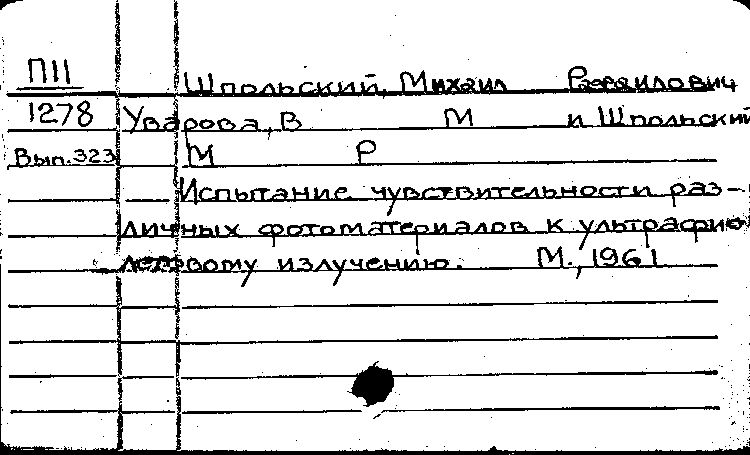 П11 Шпольский, Михаил Рафаилович
1278 Уварова, В М и Шпольский
Вып. 323 М Р
Испытание чувствительности раз-
личных фотоматериалов к ультрафио
летовому излучению. М., 1961